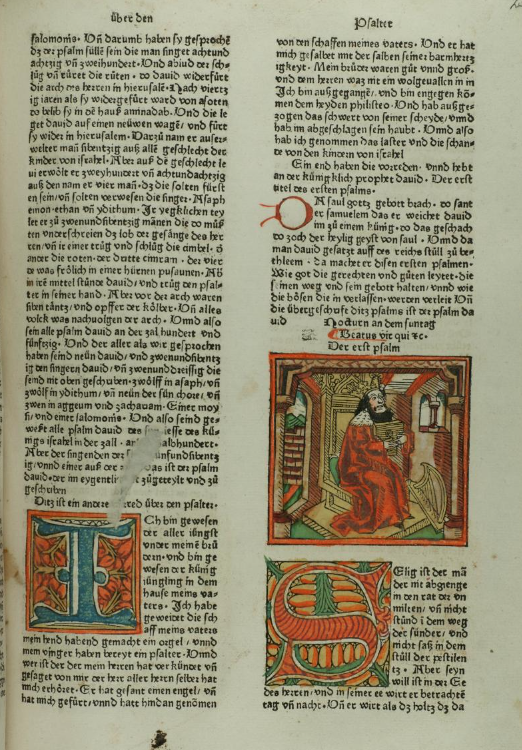 über den
salomonis. Vn̄ darumb haben sy gesprochē
dz der psalm süllē sein die man singet achtund
achtzig vn̄ zweihundert. Vnd abiud der sch-
lūg vn̄ rüret die rūten. do dauid widerfürt
die arch des herren in hierusalē. Nach viertz
ig iaren als sy widerfürt ward von asoten
do belib sy in dē hauß aminadab. Vnd die le
get dauid auf einen neüwen wagē/ vnd fürt
sy wider in hierusalem. Darzū nam er außer-
welter man sibentzig auß allē geschlecht der
kinder von israhel. Aber auß dē geschlecht le
ui erwölt er zweyhundert vn̄ achtundachtzig
auß den nam er vier man. dz die solten fürst
en sein/ vn̄ solten verwesen die singer. Asaph
emon. ethan vn̄ ydithum. Jr yegklichen tey
let er zū zwenundsibentzig mānen die do müß
ten vnderschreien dz lob der gesänge des her
ren/ vn̄ ir einer trūg vnd schlūg die cimbel. d
ander die roten. der dritte cimram. der vier
de was frölich in einer hürnen pusaunen. Ab
in irē mittel stūnde dauid/ vnd trūg den psal-
ter in seiner hand. Aber vor der arch waren
siben täntz/ vnd opffer der kölber. Vn̄ alles
volck was nachuolgen der arch. Vmd also
sein alle psalm dauid an der zal hundert vnd
fünfzig. Vnd der aller als wir gesprochen
haben seind neün dauid/ vnd zwenundsibentz
ig den singern dauid/ vn̄ zwenunddreissig die
seind nit oben geschriben. zwölff in asaph/ vn̄
zwölf in ydithum/ vn̄ neün der sün chore/ vn̄
zwen in aggeum vnd zachariam. Einer moy
si/ vnd einer salomonis. Vnd also seind ge-
weßt alle psalm dauid des
nigs israhel in der zall. hundert.
Aber der singenden der fünfundsibentz
ig/ vnnd einer auß der was ist der psalm
dauid. der im eygentlich zūgeteylt vnd zū
geschriben
Ditz ist ein andere vorred über den psalter.
Ich bin gewesen
der aller iüngst
vnder meinē brü
dern. vnd bin ge
wesen der künig
iüngling in dem
hause meins va-
ters. Ich habe
geweidet die sch
aff meins vaters
mein hend habend gemacht ein orgel/ vnnd
mein vinger haben bereyt ein psalter. Vmd
wer ist der der mein herren hat verkündet vn̄
gesaget von mir der herr aller herrn selber hat
mich erhöret. Er hat gesant einen engel/ vn̄
hat mich gefürt/ vnnd hatt hindan genomen
Psalter
von den schaffen meines vaters. Vnd er hat
mich gesalbet mit der salben seiner barmhertz
igkeyt. Mein brüder waren gūt vnnd groß.
vnd dem herren was nit ein wolgeuallen in in
Ich bin außgegangē/ vnd bin engegen kö-
men dem heyden philisteo. Vnd hab außge-
zogen das schwert von seiner scheyde/ vmnd
hab im abgeschlagen sein haubt. Vmd also
hab ich genommen das laster vnd die schan-
de von den kindern von israhel
Ein end haben die vorreden. vnnd hebt
an der künigklich prophet dauid. Der erst
titel des ersten psalms.
DA saul gottz gebott brach. do sant
er samuelem das er weichet dauid
im zū einem künig. so das geschach
do zoch der heylig geyst von saul. Vmd da
man dauid gesatzt auff des reichs stüll zū be-
thleem. da machet er disen ersten psalmen.
Wie got die gerechten vnd gūten leytet. die
seinen weg vnd sein gebott halten/ vnnd wie
die bösen die in verlassen. werden verleit Vn̄
die übergeschrift ditz psalms ist der psalm da
uid Nocturn an dem suntag
Beatus vir qui ⁊c.
Der erst psalm
Selig ist der mā
der nit abgienge
in den rat der vn
milten/ vn̄ nicht
stünd ī dem weg
der sünder/ vnd
nicht saß in dem
stüll der pestilen
tz. Aber seyn
will ist in der Ee
des herren/ vnd in seiner ee wirt er betrachtē
tag vn̄ nacht. Vn̄ er wirt als dz holtz dz da